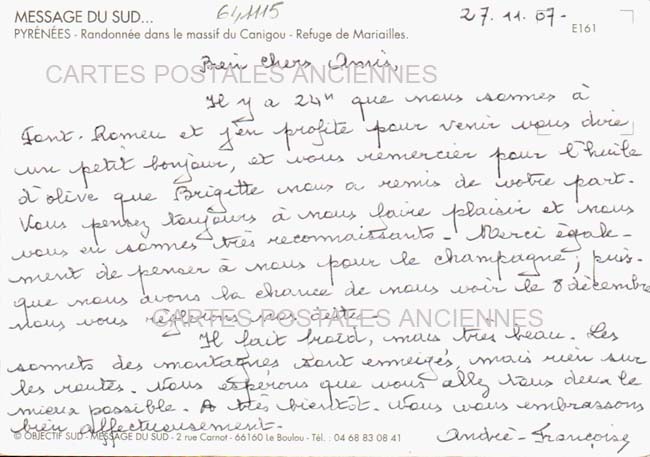 MESSAGE DU SUD... 64,1115 27.11.07-
PYRÉNÉES - Randonnée dans le massif du Canigou - Refuge de Mariailles. E161
Bien chers Amis,
CARTES POSTALES ANCIENNES
Il y a 24H que nous sommes à
Font-Romeu et j'en profite pour venir vous dire
un petit bonjour, et vous remercier pour l'huile
d'olive que Brigitte nous a remis de votre part.
Vous pensez toujours à nous faire plaisir et nous
vous en sommes très reconnaissants - Merci égale-
ment de penser à nous pour le champagne ; puis-
que nous avons la chance de nous voir le 8 décembre
nous vous règlerons nos dettes -
CARTES POSTALES ANCIENNES
Il fait froid, mais très beau. Les
sommets des montagnes sont enneigés, mais rien sur
les routes. Nous espérons que vous allez tous deux le
mieux possible. A très bientôt. Nous vous embrassons
bien affectueusement.
André-Françoise
© OBJECTIF SUD - MESSAGE DU SUD - 2 rue Carnot - 66160 Le Boulou - Tél. : 04 68 83 08 41